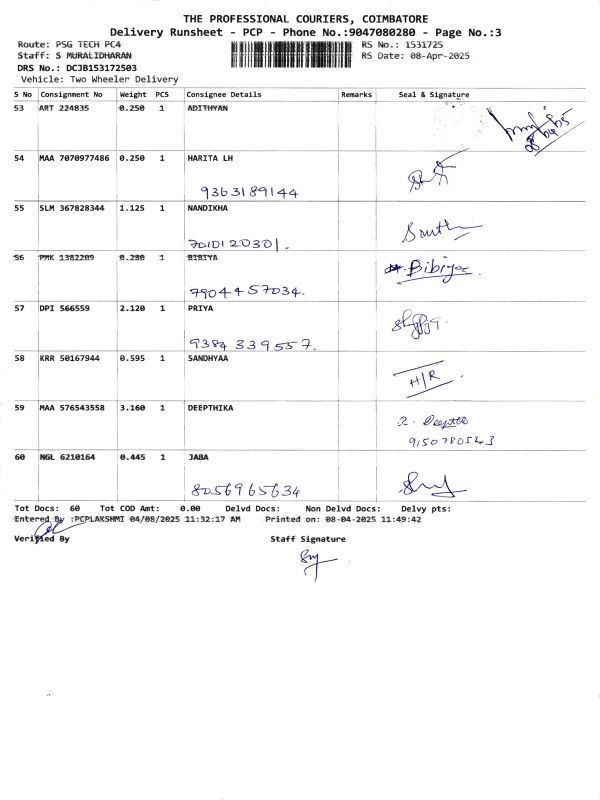 THE PROFESSIONAL COURIERS, COIMBATORE
Delivery Runsheet - PCP - Phone No.:9047080280 - Page No.:3
Route: PSG TECH PC4 RS No.: 1531725
Staff: S MURALIDHARAN RS Date: 08-Apr-2025
DRS No.: DCJB153172503
Vehicle: Two Wheeler Delivery
S No Consignment No Weight PCS Consignee Details Remarks Seal & Signature
53 ART 224835 0.250 1 ADITHYAN
54 MAA 7070977486 0.250 1 HARITA LH
9363189144
55 SLM 367828344 1.125 1 NANDIKHA
7010120301.
56 PMK 1382209 0.280 1 BIBIYA
7904457034.
57 DPI 566559 2.120 1 PRIYA
9384339557.
58 KRR 50167944 0.595 1 SANDHYAA
H/R
59 MAA 576543558 3.160 1 DEEPTHIKA
9150780543
60 NGL 6210164 0.445 1 JABA
8056965634
Tot Docs: 60 Tot COD Amt: 0.00 Delvd Docs: Non Delvd Docs: Delvy pts:
Entered By :PCPLAKSHMI 04/08/2025 11:32:17 AM Printed on: 08-04-2025 11:49:42
Verified By Staff Signature